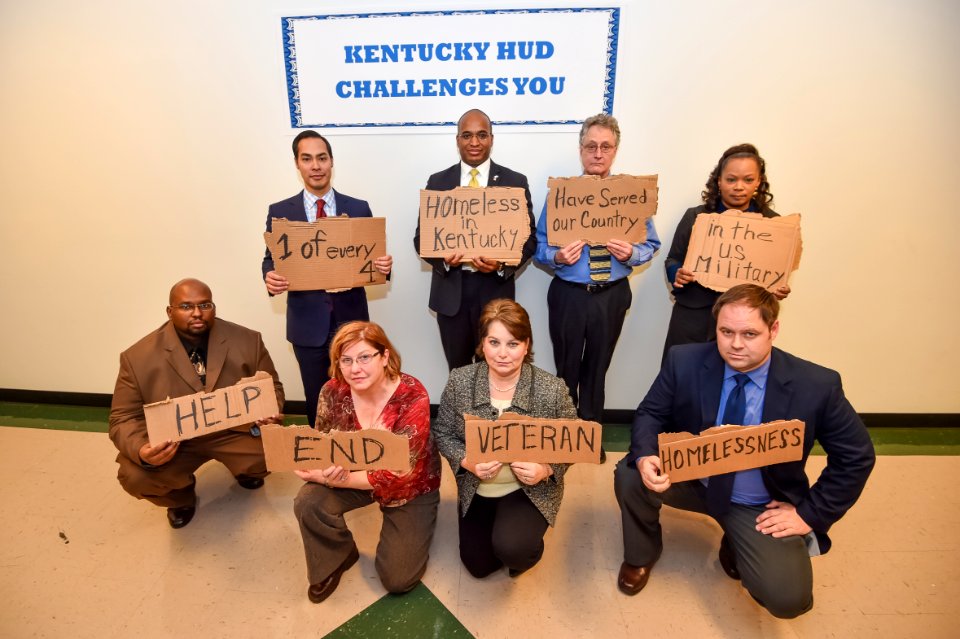 KENTUCKY HUD
CHALLENGES YOU
1 of every
4
HOMeless
in
Kentucky
Have Served
our Country
in the
US
Military
HELP
END
VETERAN
HOMELESSNESS